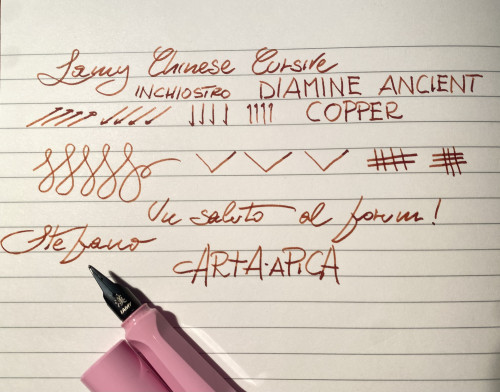 Lamy Chinese Cursive
INCHIOSTRO DIAMINE ANCIENT
COPPER
Un saluto al forum!
Stefano
CARTA: APICA
LAMY